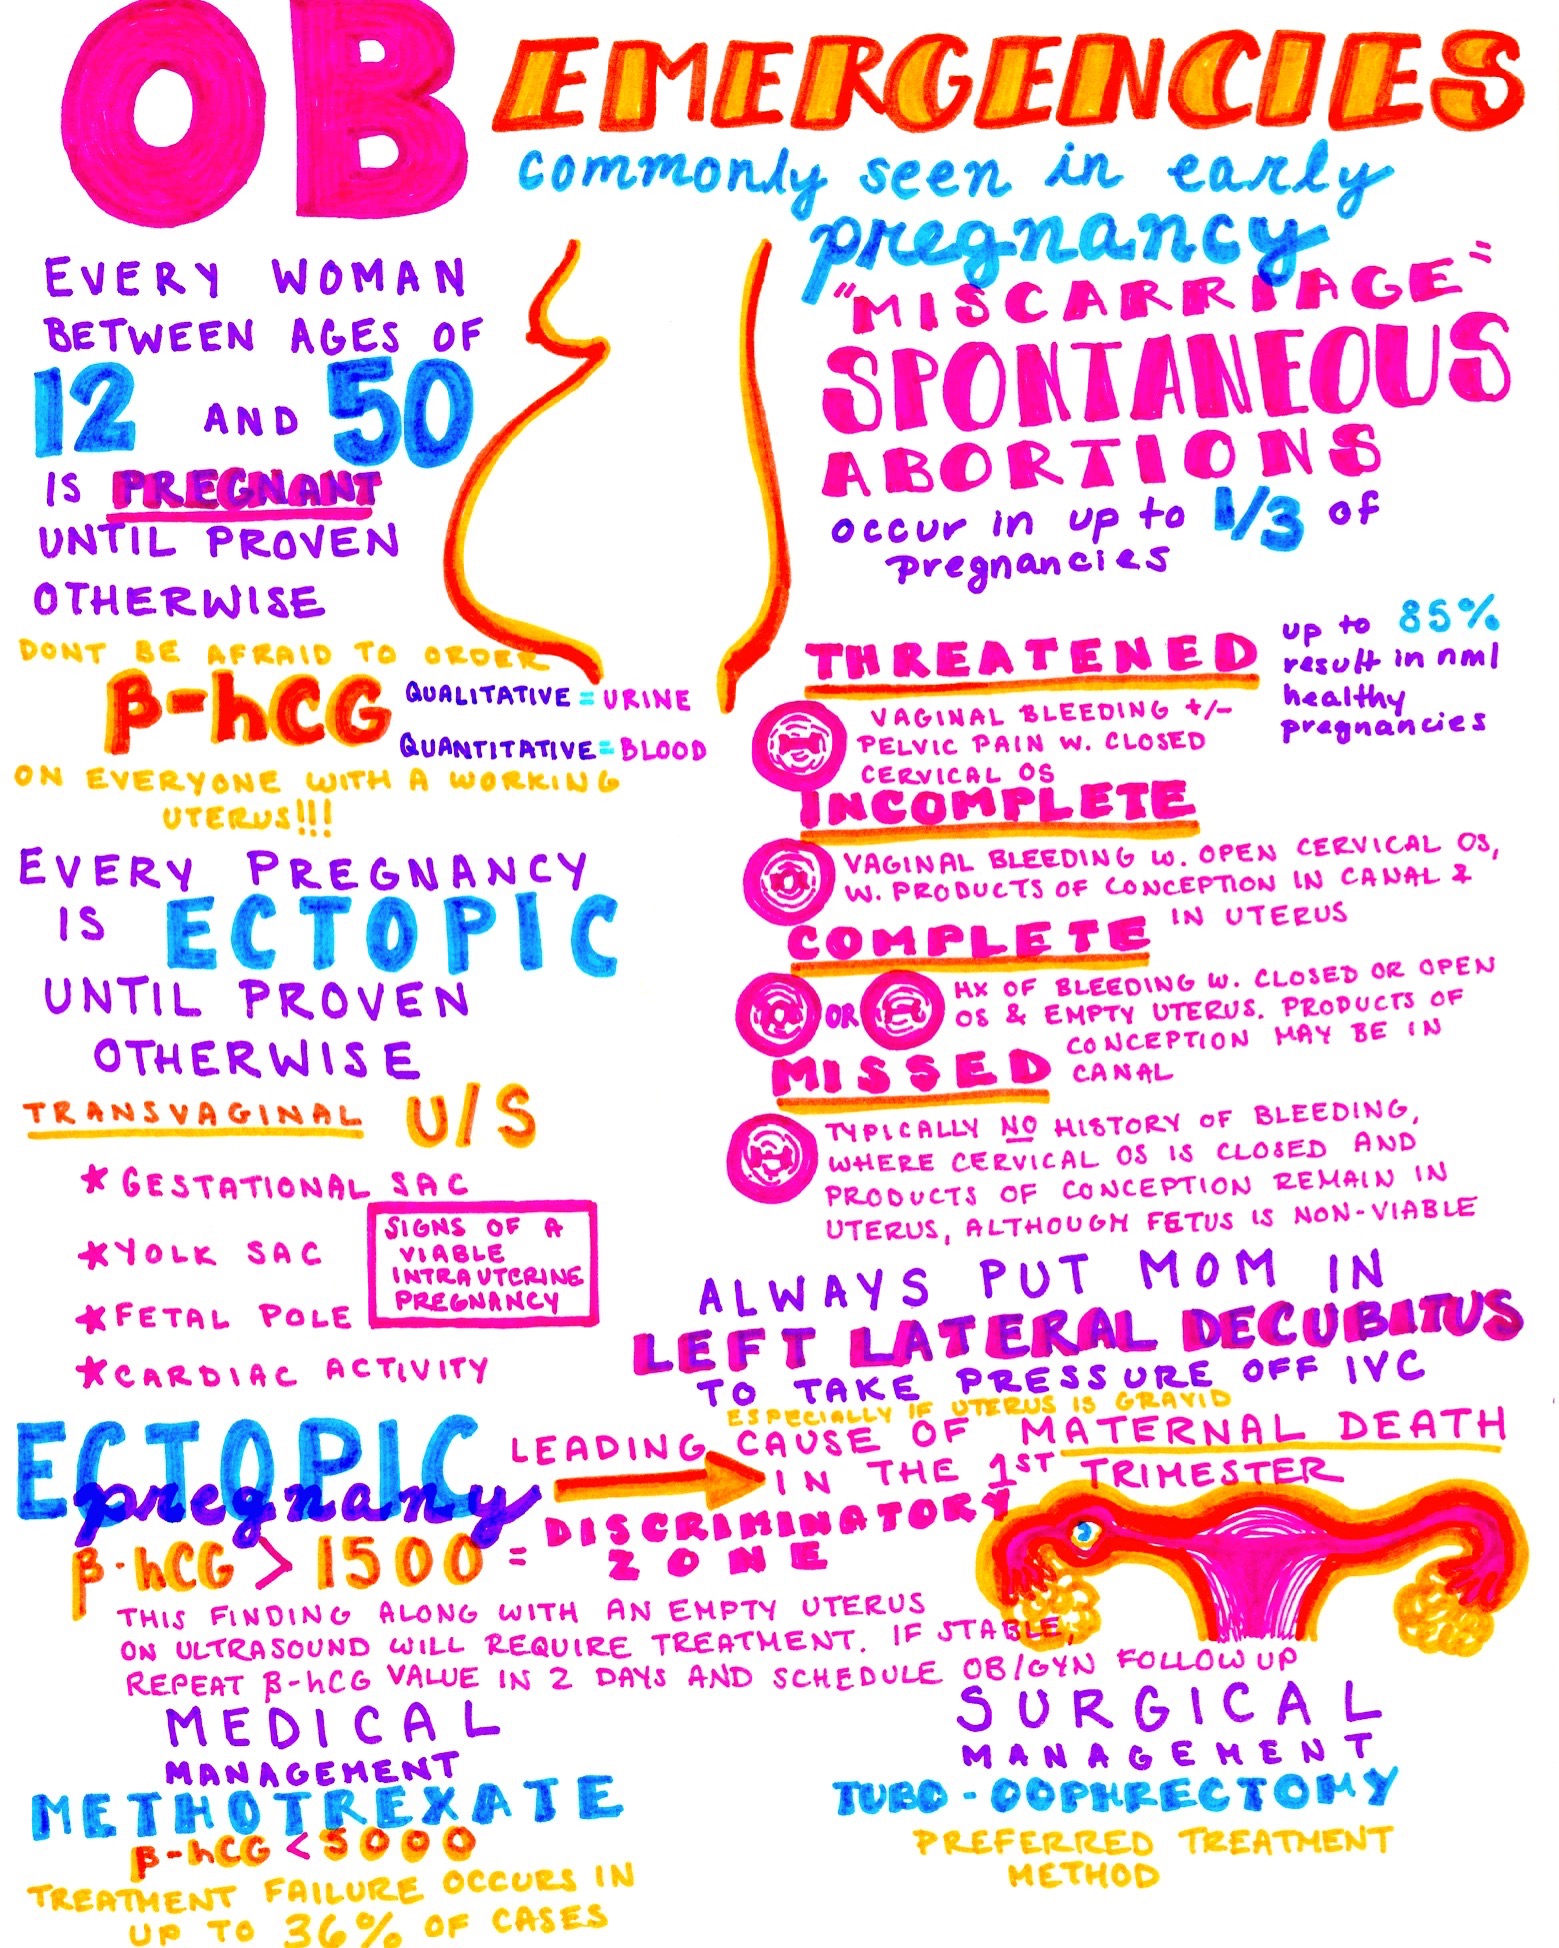 OB EMERGENCIES
commonly seen in early
pregnancy
EVERY WOMAN
BETWEEN AGES OF
12 AND 50
IS PREGNANT
UNTIL PROVEN
OTHERWISE
DONT BE AFRAID TO ORDER
β-hCG
QUALITATIVE = URINE
QUANTITATIVE = BLOOD
ON EVERYONE WITH A WORKING
UTERUS!!!
EVERY PREGNANCY
IS ECTOPIC
UNTIL PROVEN
OTHERWISE
TRANSVAGINAL U/S
* GESTATIONAL SAC
* YOLK SAC
* FETAL POLE
* CARDIAC ACTIVITY
SIGNS OF A
VIABLE
INTRAUTERINE
PREGNANCY
"MISCARRIAGE"
SPONTANEOUS
ABORTIONS
occur in up to 1/3 of
pregnancies
THREATENED
up to 85%
result in nml
healthy
pregnancies
VAGINAL BLEEDING +/-
PELVIC PAIN W. CLOSED
CERVICAL OS
INCOMPLETE
VAGINAL BLEEDING W. OPEN CERVICAL OS,
W. PRODUCTS OF CONCEPTION IN CANAL &
IN UTERUS
COMPLETE
OR
HX OF BLEEDING W. CLOSED OR OPEN
OS & EMPTY UTERUS. PRODUCTS OF
CONCEPTION MAY BE IN
CANAL
MISSED
TYPICALLY NO HISTORY OF BLEEDING,
WHERE CERVICAL OS IS CLOSED AND
PRODUCTS OF CONCEPTION REMAIN IN
UTERUS, ALTHOUGH FETUS IS NON-VIABLE
ALWAYS PUT MOM IN
LEFT LATERAL DECUBITUS
TO TAKE PRESSURE OFF IVC
ESPECIALLY IF UTERUS IS GRAVID
ECTOPIC
pregnany
LEADING CAUSE OF MATERNAL DEATH
IN THE 1ST TRIMESTER
β-hCG > 1500 = DISCRIMINATORY
ZONE
THIS FINDING ALONG WITH AN EMPTY UTERUS
ON ULTRASOUND WILL REQUIRE TREATMENT. IF STABLE,
REPEAT β-hCG VALUE IN 2 DAYS AND SCHEDULE OB/GYN FOLLOW UP
MEDICAL
MANAGEMENT
METHOTREXATE
β-hCG < 5000
TREATMENT FAILURE OCCURS IN
UP TO 36% OF CASES
SURGICAL
MANAGEMENT
TUBO-OOPHRECTOMY
PREFERRED TREATMENT
METHOD